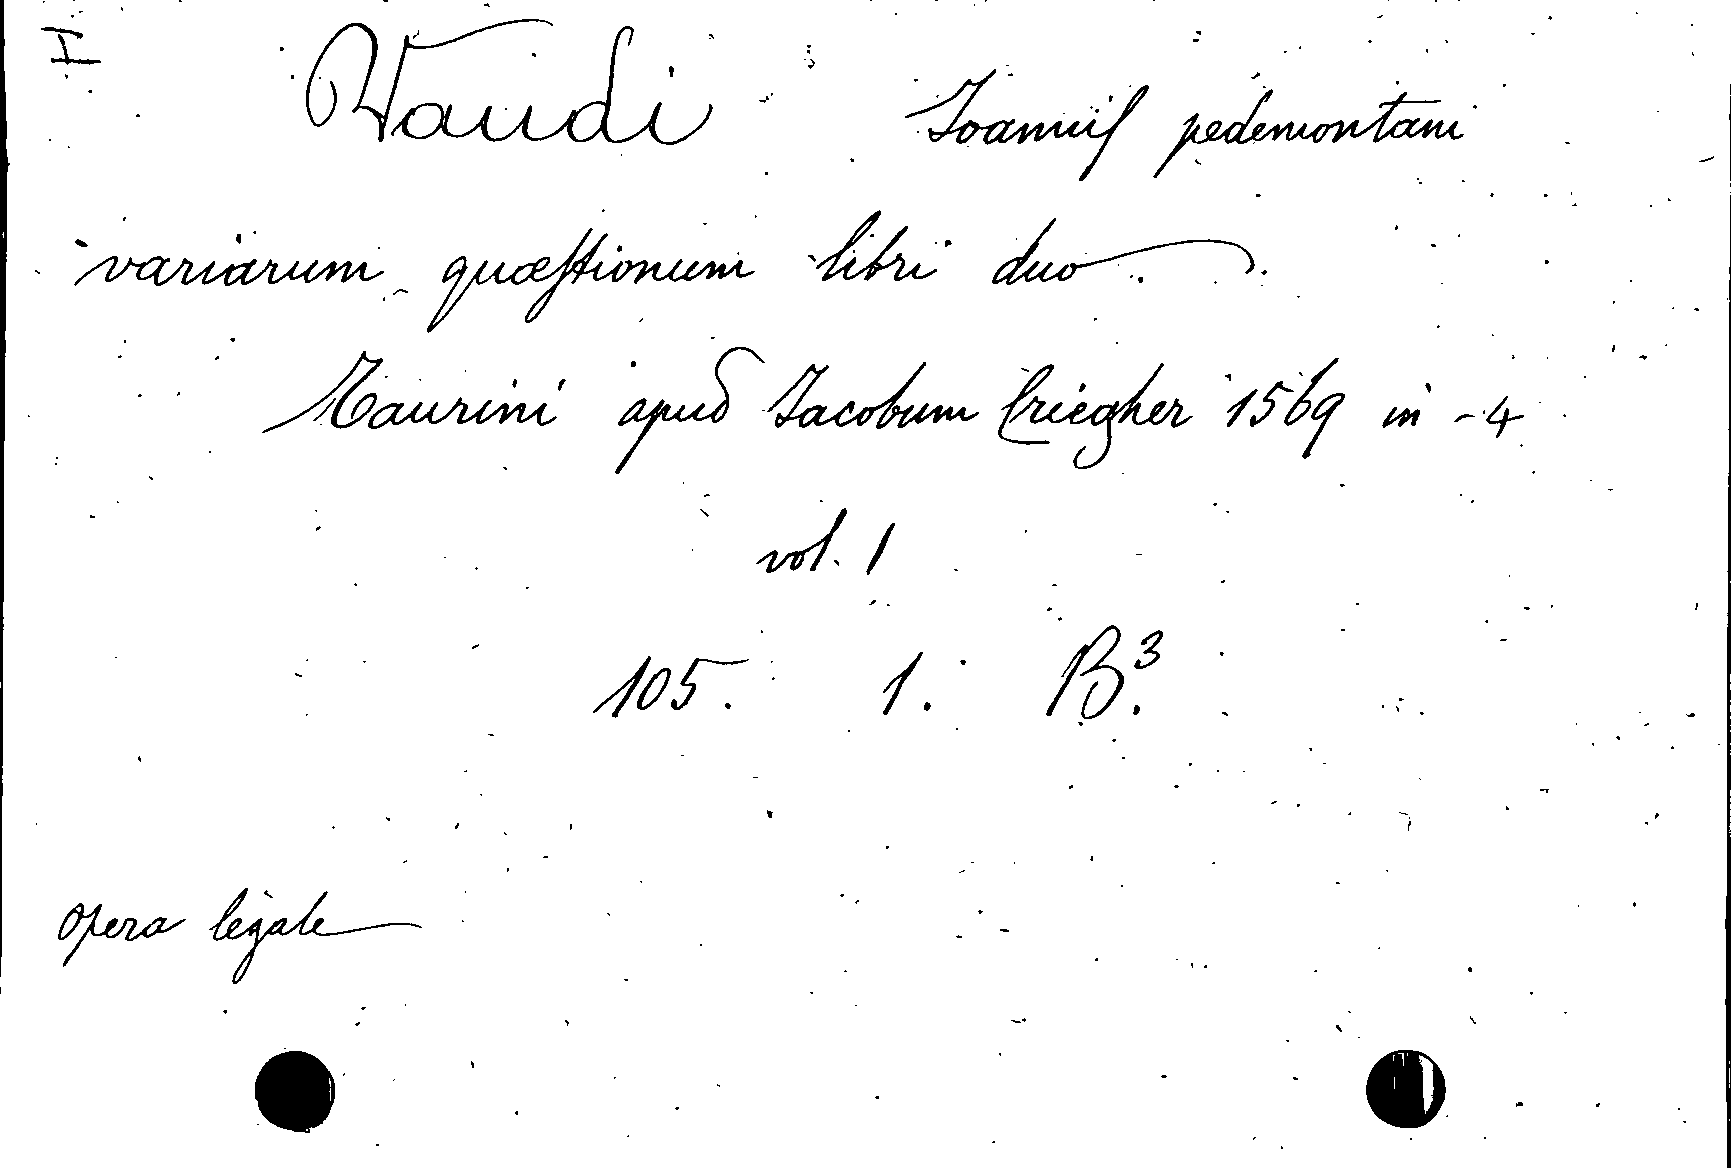 I
Vaudi Joannis pedemontani
variarum quæstionum libri duo.
Taurini apud Jacobum Criegher 1569 in-4
vol. 1
105. 1. B³.
opera legale